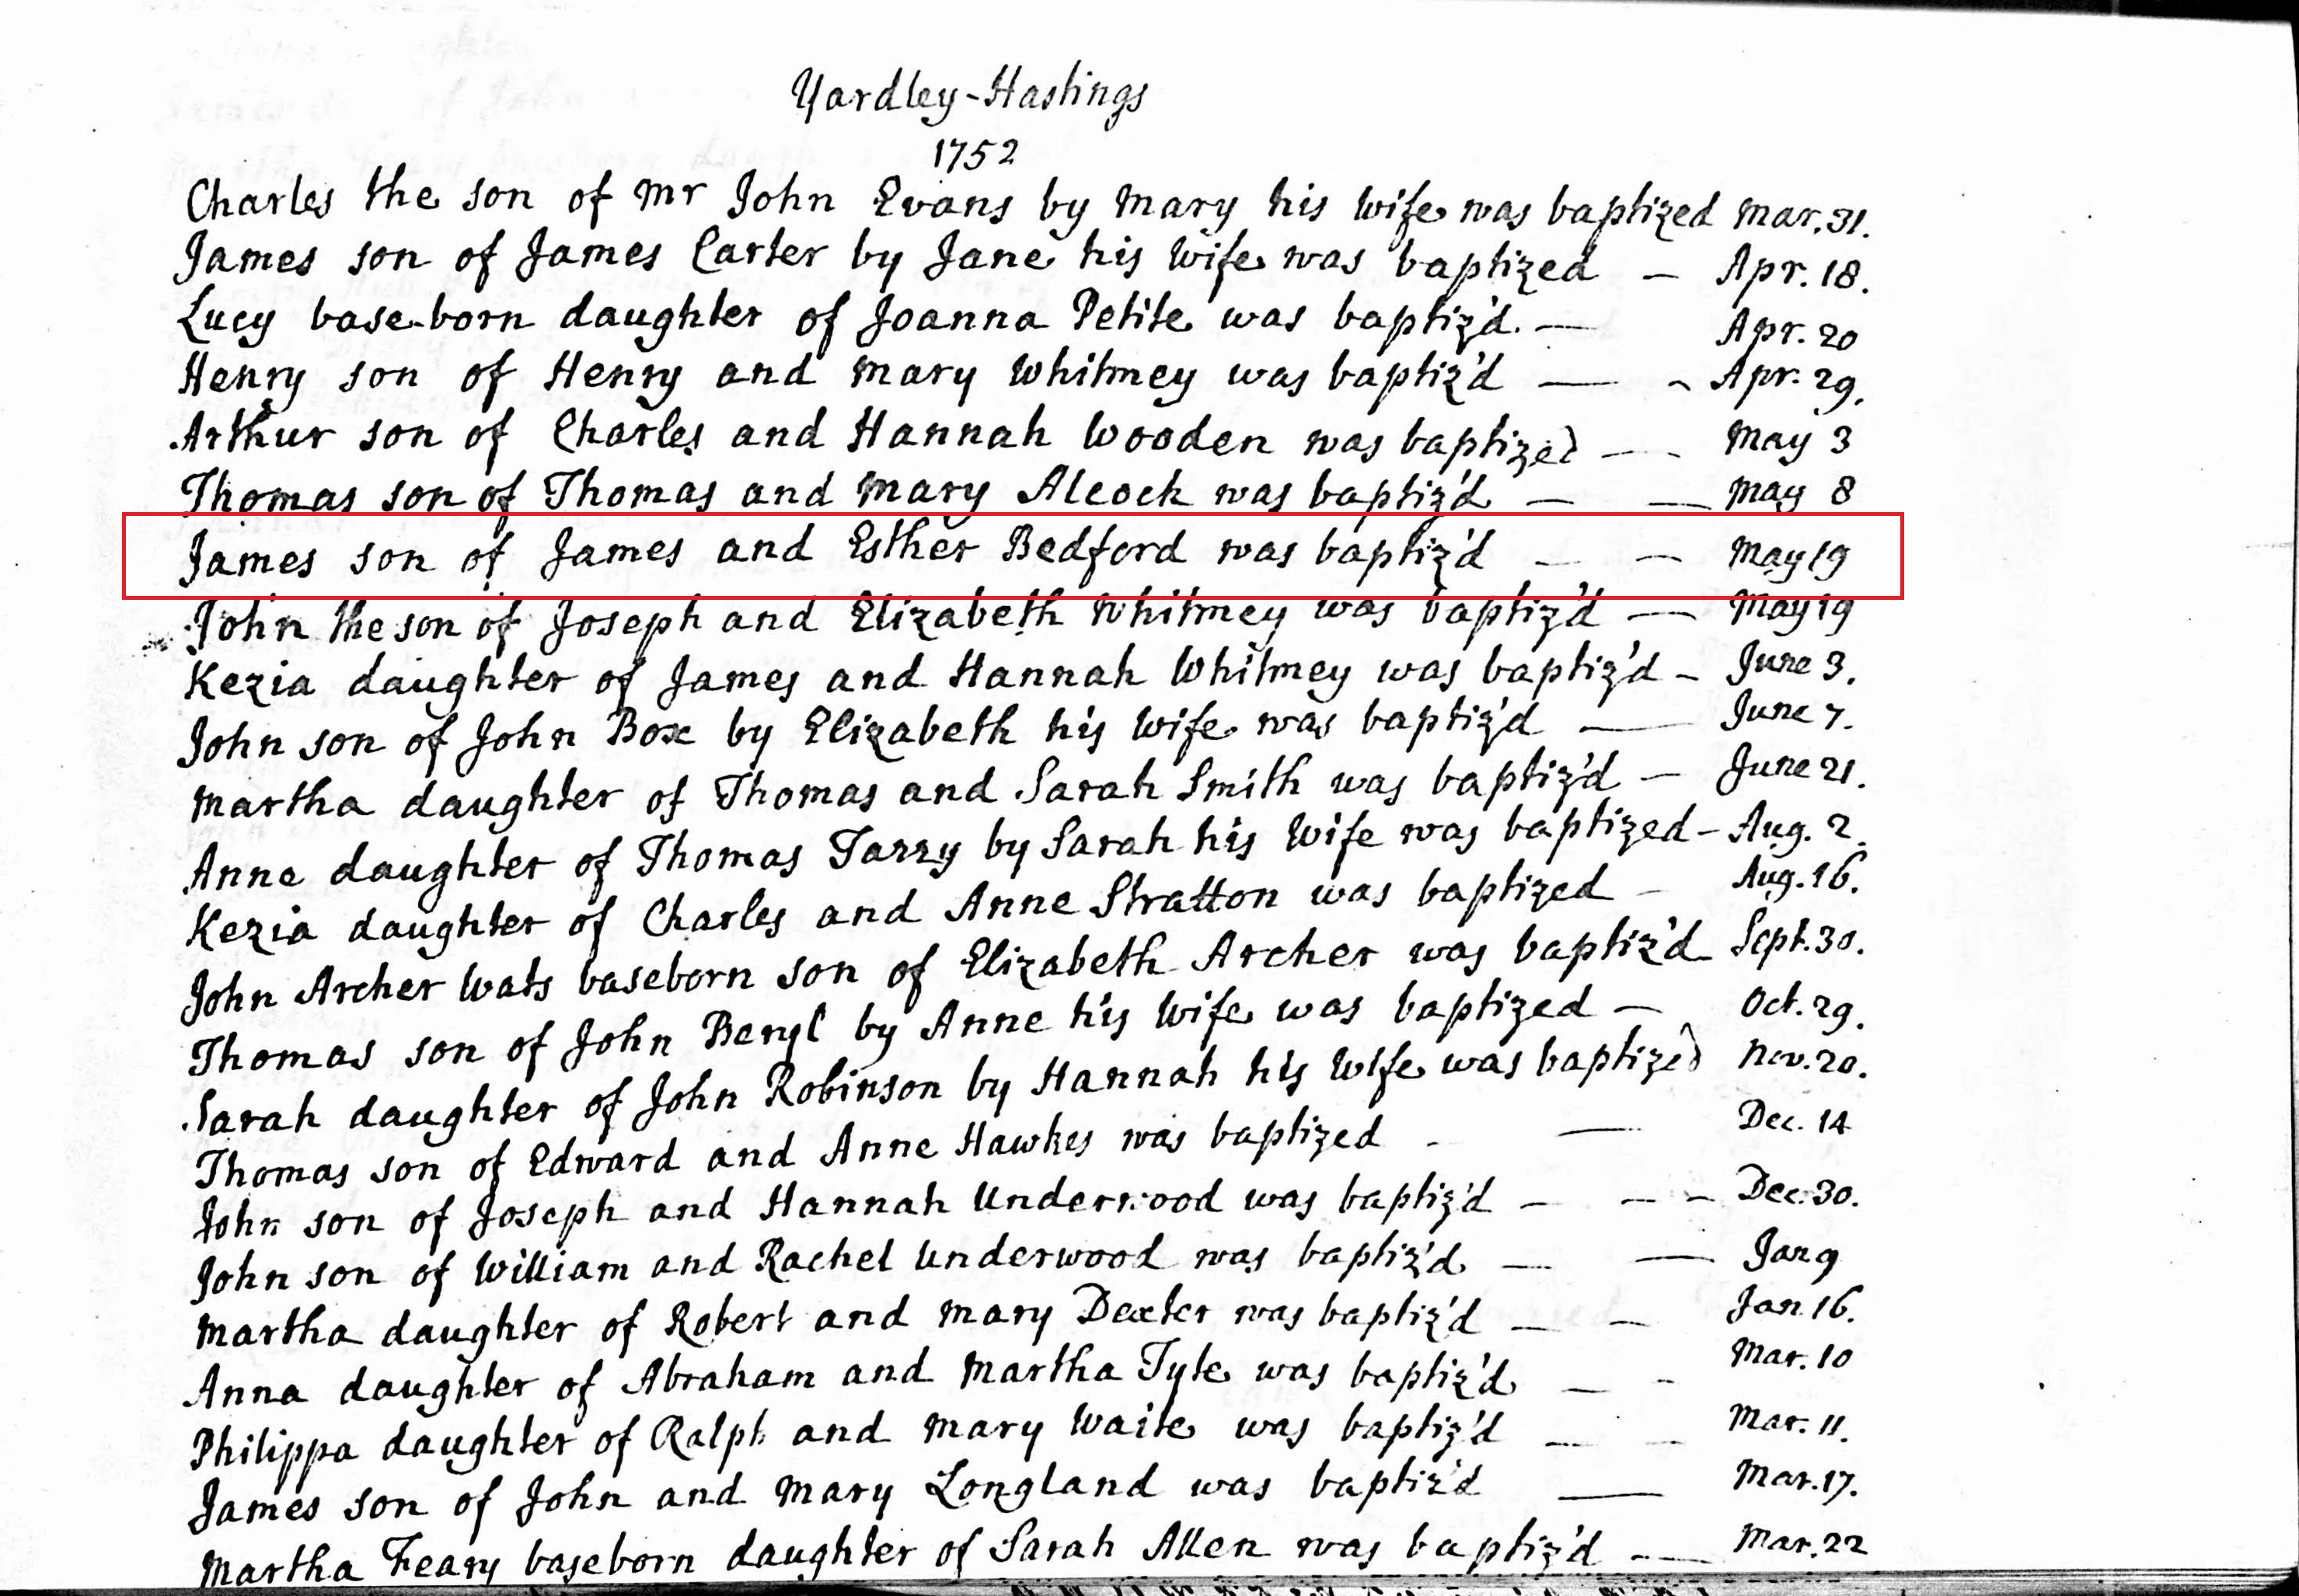 Yardley-Hastings
1752
Charles the son of Mr John Evans by Mary his Wife was baptized Mar. 31.
James son of James Carter by Jane his Wife was baptized — Apr. 18.
Lucy base-born daughter of Joanna Petite was baptiz'd. — Apr. 20
Henry son of Henry and Mary Whitmey was baptiz'd — - Apr. 29.
Arthur son of Charles and Hannah Wooden was baptized — - May 3
Thomas son of Thomas and Mary Alcock was baptiz'd — — May 8
James son of James and Esther Bedford was baptiz'd — — May 19
John the son of Joseph and Elizabeth Whitmey was baptiz'd — May 19
Kezia daughter of James and Hannah Whitmey was baptiz'd - June 3.
John son of John Box by Elizabeth his Wife was baptiz'd — June 7.
Martha daughter of Thomas and Sarah Smith was baptiz'd — June 21.
Anne daughter of Thomas Tarry by Sarah his Wife was baptized - Aug. 2.
Kezia daughter of Charles and Anne Stratton was baptized - Aug. 16.
John Archer Wats baseborn son of Elizabeth Archer was baptiz'd Sept. 30.
Thomas son of John by Anne his Wife was baptized — Oct. 29.
Sarah daughter of John Robinson by Hannah his Wife was baptized Nov. 20.
Thomas son of Edward and Anne Hawkes was baptized - — Dec. 14
John son of Joseph and Hannah Underwood was baptiz'd — - - Dec. 30.
John son of William and Rachel Underwood was baptiz'd — — Jan 9
Martha daughter of Robert and Mary Dexter was baptiz'd — — Jan. 16.
Anna daughter of Abraham and Martha Tyle was baptiz'd — - Mar. 10
Philippa daughter of Ralph and Mary Waite was baptiz'd — - Mar. 11.
James son of John and Mary Longland was baptiz'd — Mar. 17.
Martha Feary baseborn daughter of Sarah Allen was baptiz'd - — Mar. 22